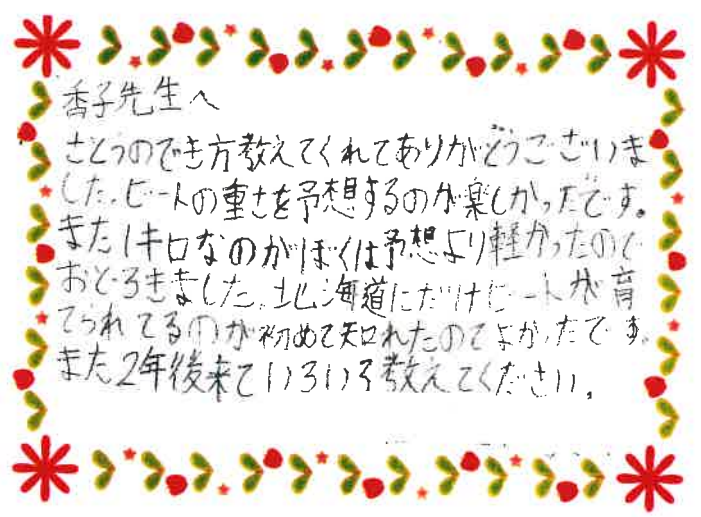 香子先生へ
さとうのでき方教えてくれてありがどうございま
した。ビートの重さを予想するのが楽しかったです。
また1キロなのがぼくは予想より軽かったので
おどろきました。北海道にだけビートが育
てられてるのが初めて知れたのでよかったです。
また2年後来ていろいろ教えてください。